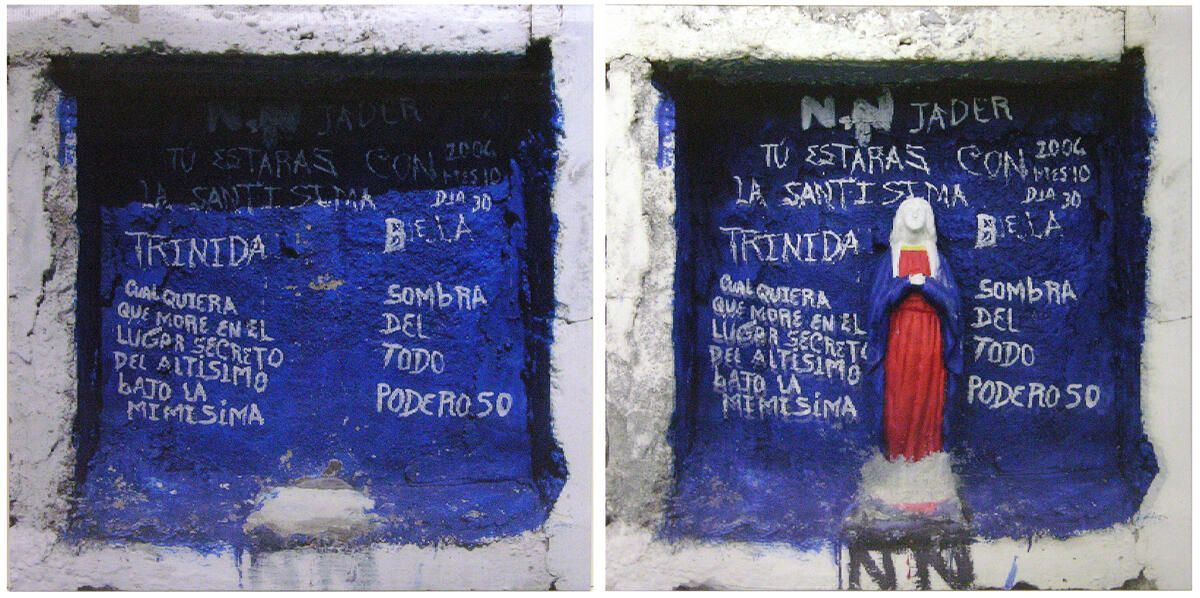 N.N JADER
TÚ ESTARAS CON 2006
MES 10
LA SANTÍSIMA DIA 30
TRINIDA BIELA
CUALQUIERA
QUE MORE EN EL
LUGAR SECRETO
DEL ALTÍSIMO
BAJO LA
MIMESIMA
SOMBRA
DEL
TODO
PODEROSO
N.N JADER
TÚ ESTARAS CON 2006
MES 10
LA SANTÍSIMA DIA 30
TRINIDA BIELA
CUALQUIERA
QUE MORE EN EL
LUGAR SECRETO
DEL ALTÍSIMO
BAJO LA
MIMESIMA
SOMBRA
DEL
TODO
PODEROSO
NN